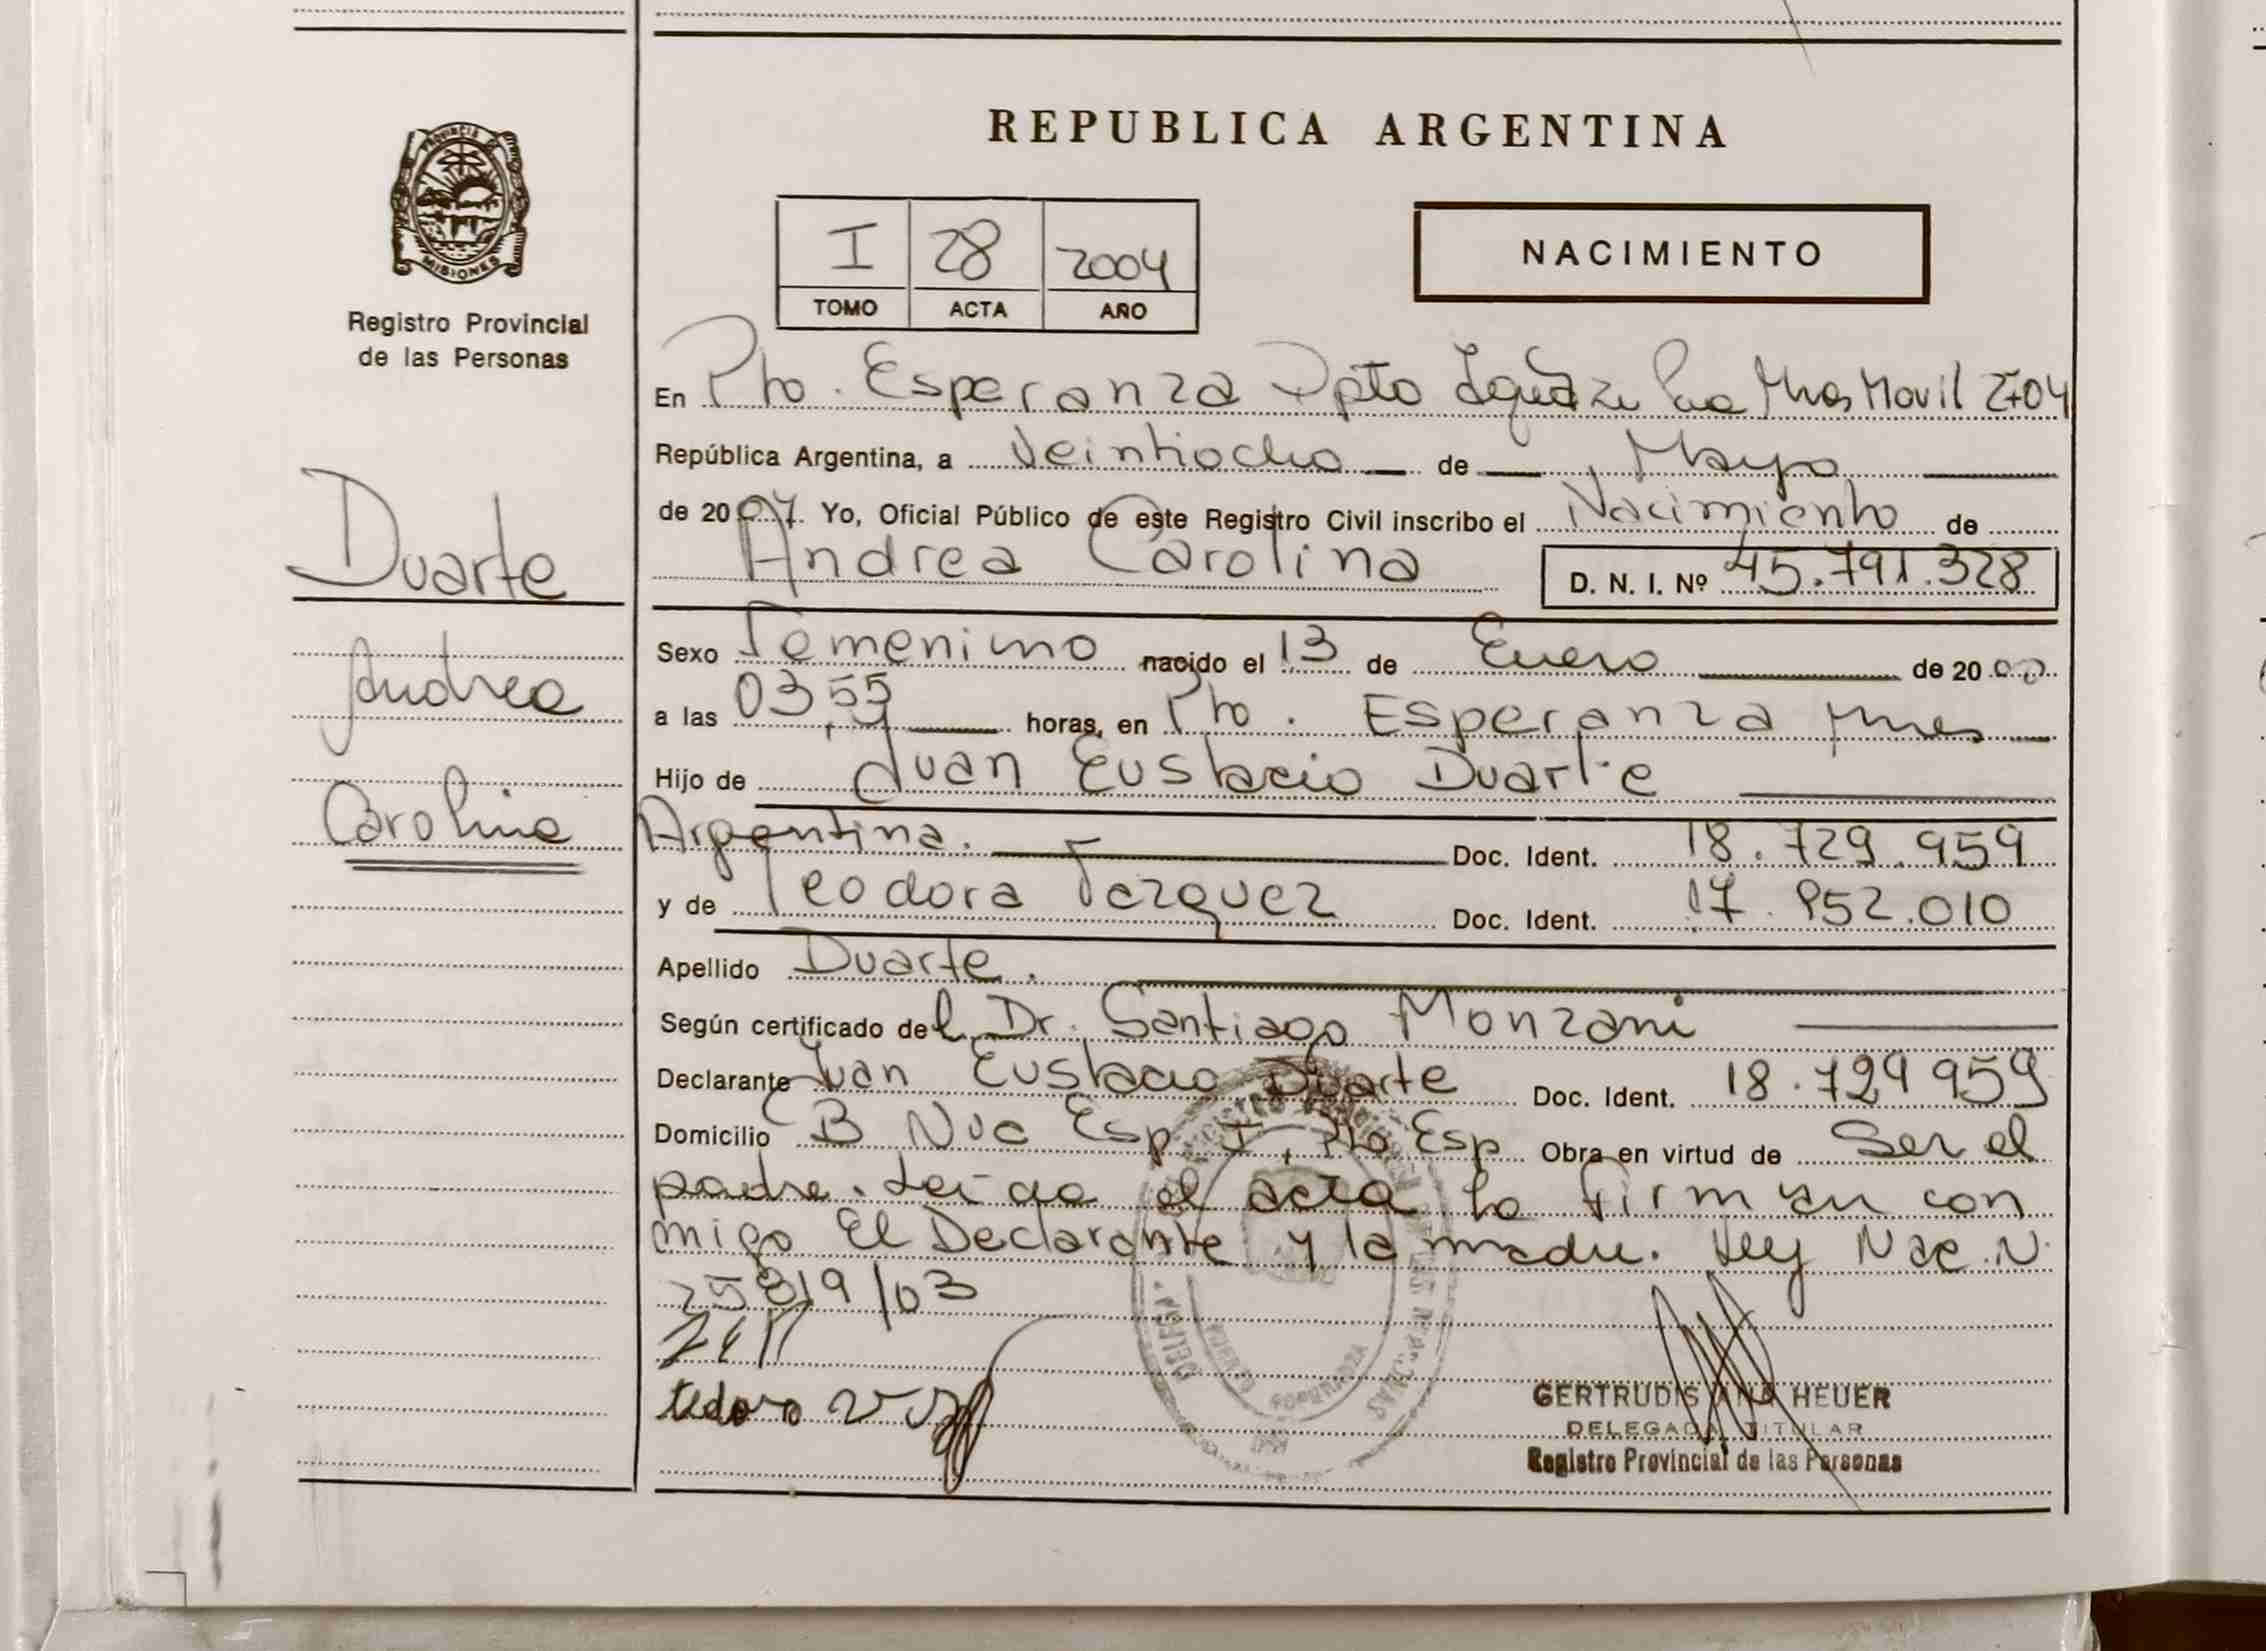 REPUBLICA ARGENTINA
PROVINCIA DE
MISIONES
Registro Provincial
de las Personas
I 28 2004
TOMO ACTA AÑO
NACIMIENTO
En Pto. Esperanza Dpto Iguazú Mnes Movil 2704
República Argentina, a Veintiocho de Mayo
de 2004. Yo, Oficial Público de este Registro Civil inscribo el Nacimiento de
Andrea Carolina D. N. I. Nº 45.791.328
Duarte
Andrea
Carolina
Sexo Femenino nacido el 13 de Enero de 2000
a las 03,55 horas, en Pto. Esperanza Mnes
Hijo de Juan Eustacio Duarte
Argentina. Doc. Ident. 18.729.959
y de Teodora Vazquez Doc. Ident. 17.952.010
Apellido Duarte.
Según certificado del Dr. Santiago Monzani
Declarante Juan Eustacio Duarte Doc. Ident. 18.729 959
Domicilio B Nva Esp I, Pto Esp Obra en virtud de Ser el
padre. Leida el acta la firman con
migo El Declarante y la madre. Ley Nac. N.
25819/03
GERTRUDIS ANA HEUER
DELEGADA TITULAR
Registro Provincial de las Personas